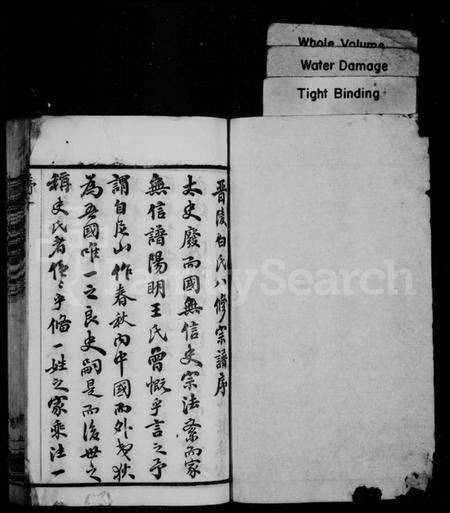 Whole Volume
Water Damage
Tight Binding
晋陵白氏八修宗譜序
太史廢而國無信史宗法紊而家
無信譜陽明王氏曾慨乎言之予
謂自尼山作春秋內中國而外夷狄
為吾國唯一之良史嗣是而後世之
稱史氏者僅乎備一姓之家乘法一
FamilySearch